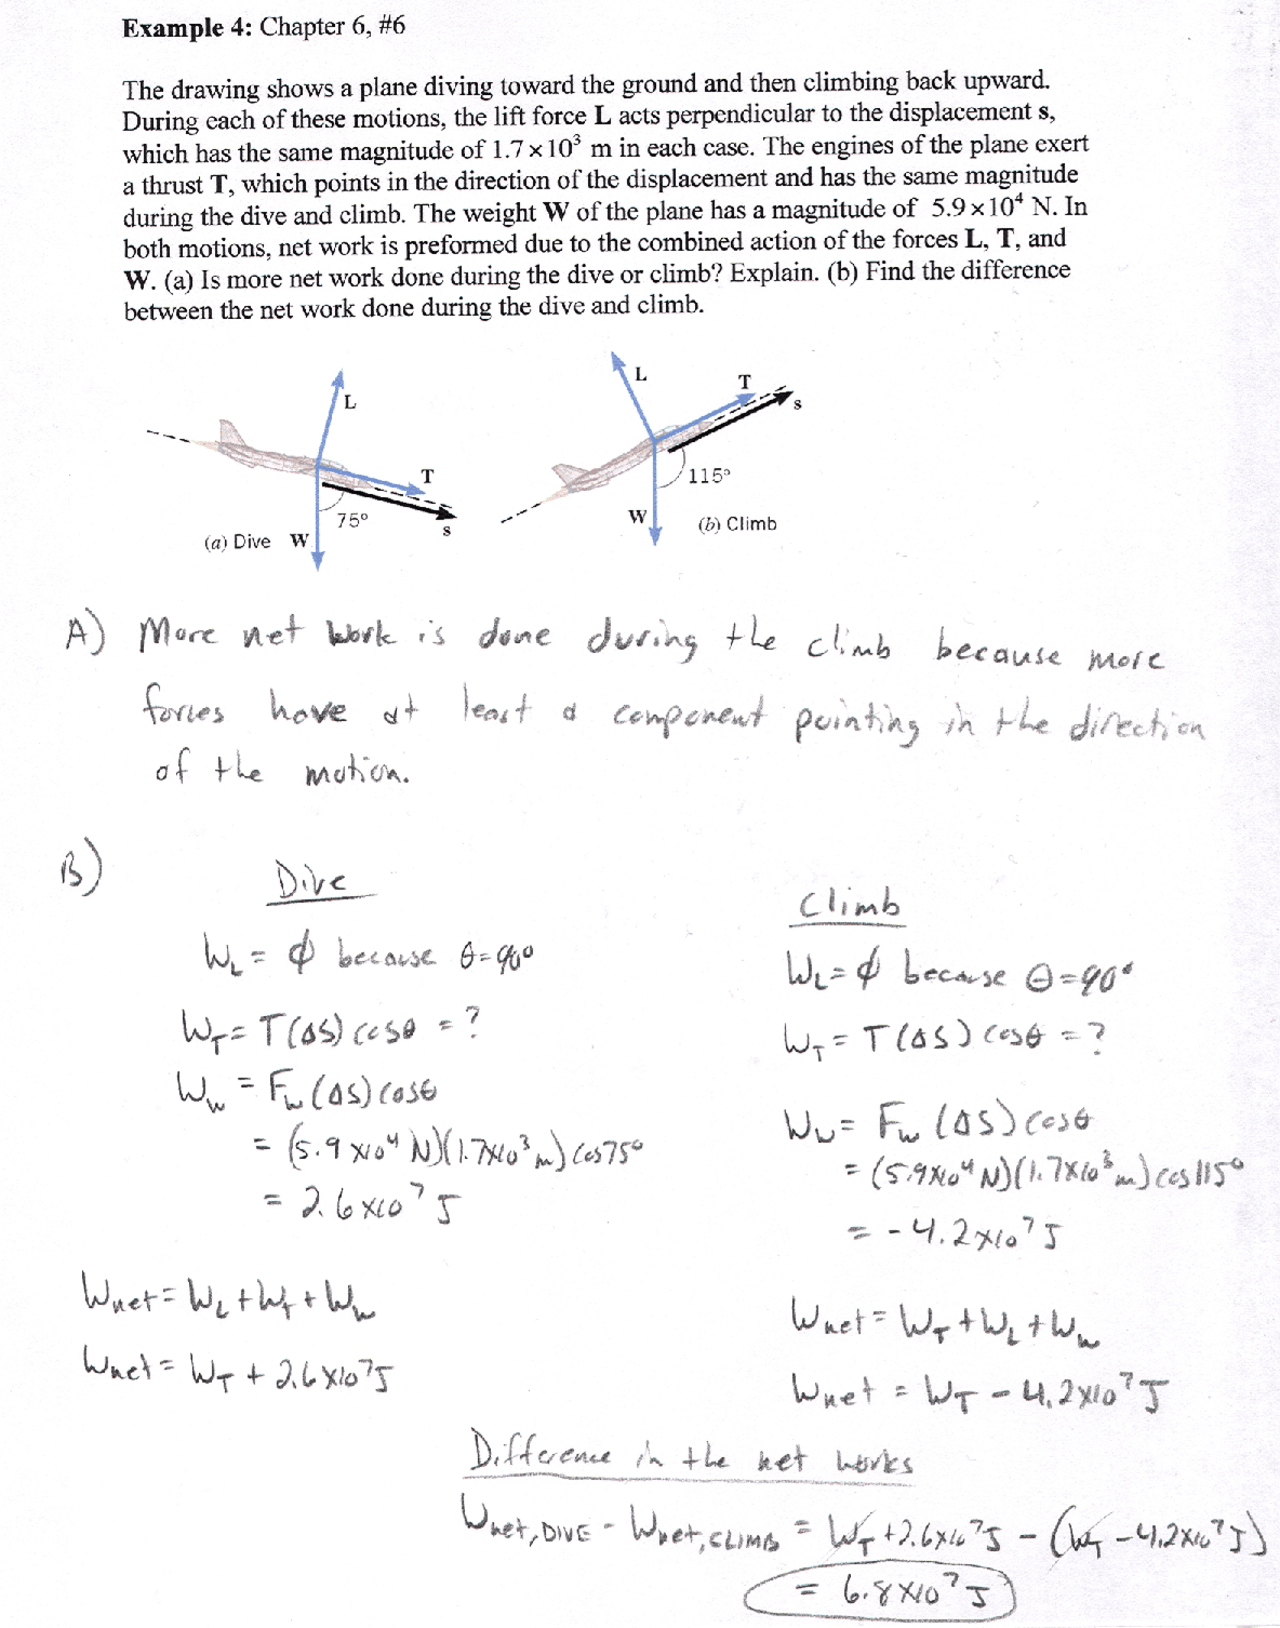 Example 4: Chapter 6, #6
The drawing shows a plane diving toward the ground and then climbing back upward.
During each of these motions, the lift force L acts perpendicular to the displacement s,
which has the same magnitude of 1.7×10³ m in each case. The engines of the plane exert
a thrust T, which points in the direction of the displacement and has the same magnitude
during the dive and climb. The weight W of the plane has a magnitude of 5.9×10⁴ N. In
both motions, net work is preformed due to the combined action of the forces L, T, and
W. (a) Is more net work done during the dive or climb? Explain. (b) Find the difference
between the net work done during the dive and climb.
L
T
75°
s
(a) Dive W
L
T
s
115°
W
(b) Climb
A) More net work is done during the climb because more
forces have at least a component pointing in the direction
of the motion.
B)
Dive
W_L = ∅ because θ=90°
W_T = T(ΔS) cosθ = ?
W_w = F_w (ΔS) cosθ
= (5.9×10⁴ N)(1.7×10³ m) cos75°
= 2.6×10⁷ J
W_net = W_L + W_T + W_w
W_net = W_T + 2.6×10⁷ J
Climb
W_L = ∅ because θ=90°
W_T = T(ΔS) cosθ = ?
W_w = F_w (ΔS) cosθ
= (5.9×10⁴ N)(1.7×10³ m) cos115°
= -4.2×10⁷ J
W_net = W_T + W_L + W_w
W_net = W_T - 4.2×10⁷ J
Difference in the net works
W_net,DIVE - W_net,CLIMB = W_T + 2.6×10⁷ J - (W_T - 4.2×10⁷ J)
= 6.8×10⁷ J